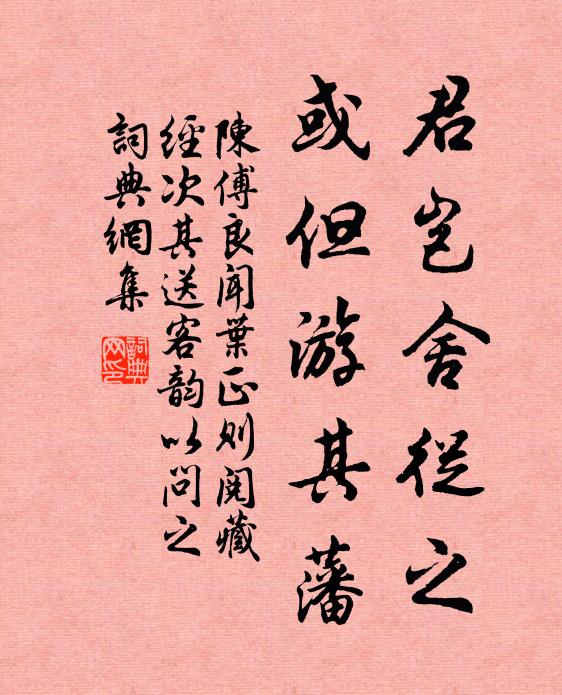 君岂舍從之
或但游其藩
陳傅良聞葉正则阅藏
經次其送客韵以問之
詞典網集
詞典网印